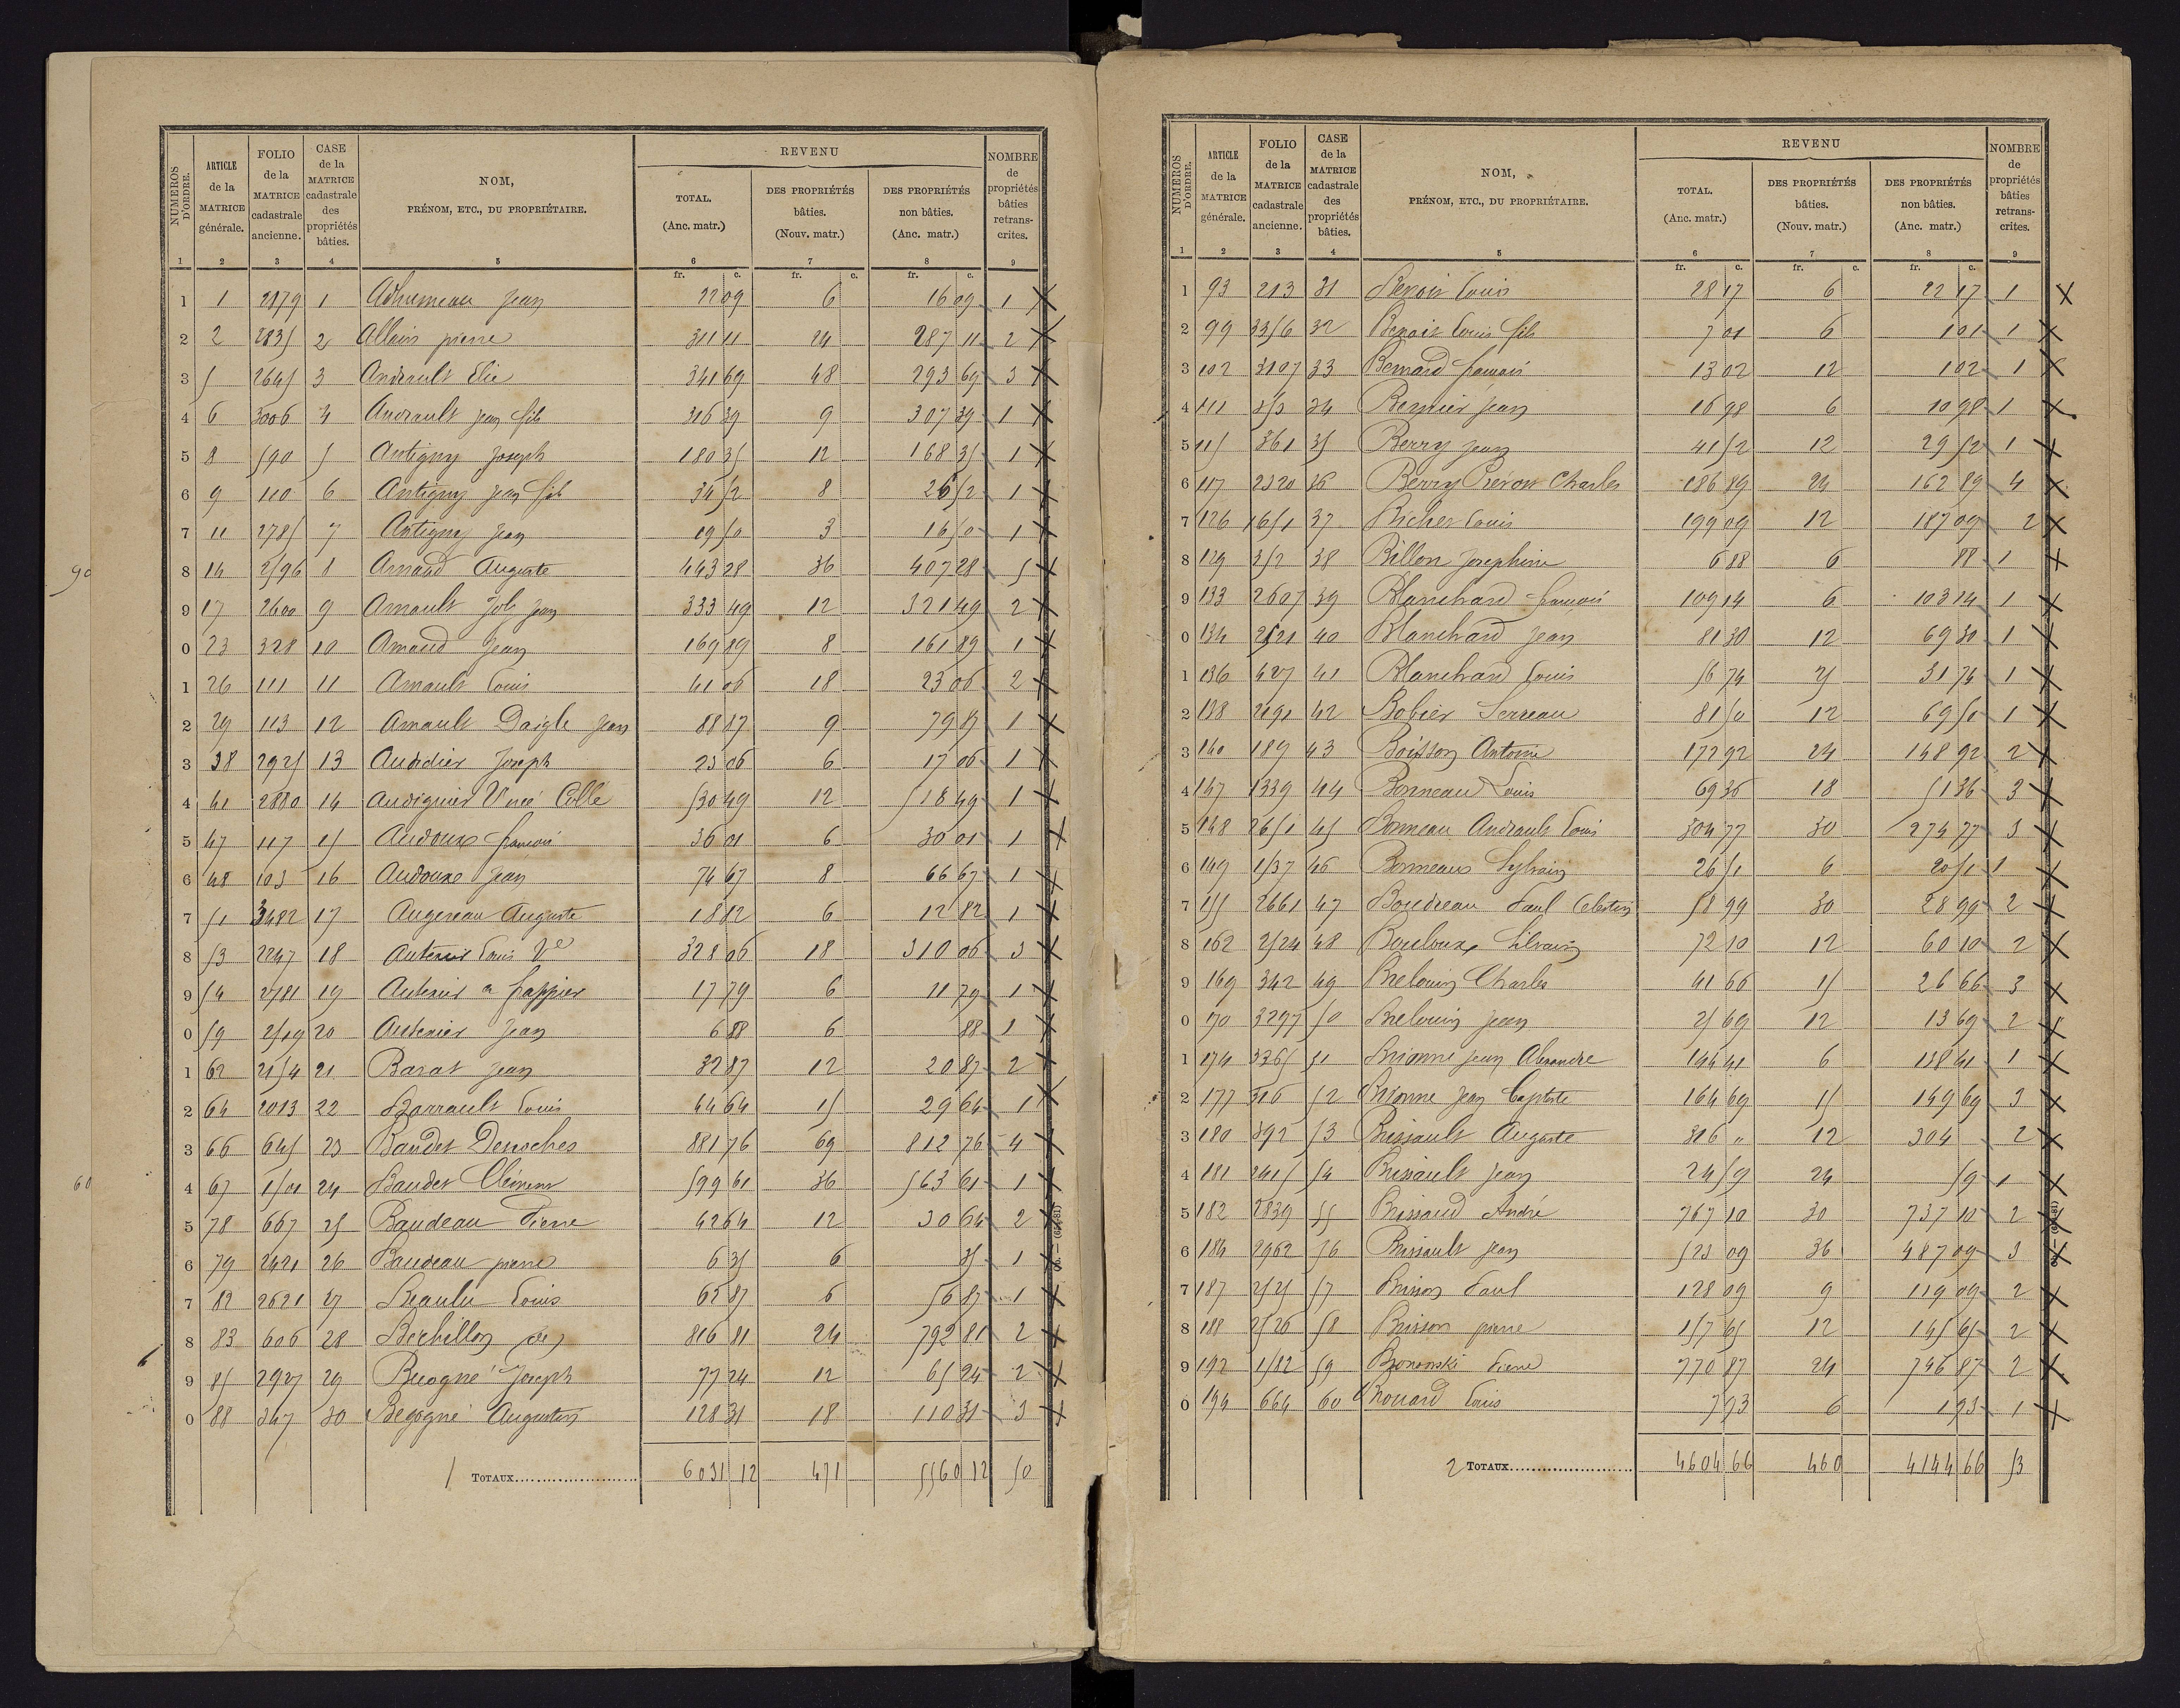 NUMÉROS D'ORDRE. | ARTICLE de la MATRICE générale. | FOLIO de la MATRICE cadastrale ancienne. | CASE de la MATRICE cadastrale des propriétés bâties. | NOM, PRÉNOM, ETC., DU PROPRIÉTAIRE. | REVENU | TOTAL. (Anc. matr.) | DES PROPRIÉTÉS bâties. (Nouv. matr.) | DES PROPRIÉTÉS non bâties. (Anc. matr.) | NOMBRE de propriétés bâties retranscrites.
1 2 3 4 5 6 7 8 9
fr. c. fr. c. fr. c.
1 1 2879 1 Adhumeau Jean 22 09 6 16 09 1 X
2 2 2835 2 Allain pierre 311 11 24 287 11 2 X
3 5 2645 3 Andrault Elie 341 69 48 293 69 3 X
4 6 3006 4 Andrault Jean fils 316 39 9 307 39 1 X
5 8 590 5 Antigny Joseph 180 35 12 168 35 1 X
6 9 110 6 Antigny Jean fils 34 52 8 26 52 1 X
7 11 2785 7 Antigny Jean 19 50 3 16 50 1 X
8 14 2596 8 Arnaud Auguste 443 28 36 407 28 5 X
9 17 2600 9 Arnault Joly Jean 333 49 12 321 49 2 X
0 23 328 10 Arnaud Jean 169 89 8 161 89 1 X
1 26 111 11 Arnault Louis 41 06 18 23 06 2 X
2 29 113 12 Arnault Daigle Jean 88 87 9 79 87 1 X
3 38 2925 13 Audidier Joseph 23 06 6 17 06 1 X
4 41 2880 14 Audiguier 530 49 12 518 49 1 X
5 47 117 15 Audoux francois 36 01 6 30 01 1 X
6 48 103 16 Audoux Jean 74 67 8 66 67 1 X
7 51 3482 17 Augereau Auguste 18 82 6 12 82 1 X
8 53 2247 18 Autexier Louis Ve 328 06 18 310 06 3 X
9 54 2781 19 Autexier a frappier 17 79 6 11 79 1 X
0 59 2519 20 Autexier Jean 6 88 6 88 1 X
1 62 2154 21 Barat Jean 32 87 12 20 87 2 X
2 64 2013 22 Barrault Louis 44 64 15 29 64 1 X
3 66 645 23 Baudet Desroches 881 76 69 812 76 4 X
4 67 1501 24 Baudet Clément 599 61 36 563 61 1 X
5 78 667 25 Baudeau Pierre 42 64 12 30 64 2 X
6 79 2421 26 Baudeau pierre 6 35 6 35 1 X
7 82 2621 27 Beaulu Louis 62 87 6 56 87 1 X
8 83 606 28 Bechillon (de) 816 81 24 792 81 2 X
9 85 2927 29 Becogné Joseph 77 24 12 65 24 2 X
0 88 347 30 Begogné Augustin 128 31 18 110 31 3 X
1 TOTAUX 6031 12 471 5560 12 50
90
60
6
NUMÉROS D'ORDRE. | ARTICLE de la MATRICE générale. | FOLIO de la MATRICE cadastrale ancienne. | CASE de la MATRICE cadastrale des propriétés bâties. | NOM, PRÉNOM, ETC., DU PROPRIÉTAIRE. | REVENU | TOTAL. (Anc. matr.) | DES PROPRIÉTÉS bâties. (Nouv. matr.) | DES PROPRIÉTÉS non bâties. (Anc. matr.) | NOMBRE de propriétés bâties retranscrites.
1 2 3 4 5 6 7 8 9
fr. c. fr. c. fr. c.
1 93 213 31 Benoit Louis 28 17 6 22 17 1 X
2 99 3356 32 Benoit Louis fils 7 01 6 1 01 1 X
3 102 3107 33 Bernard francois 13 02 12 1 02 1 X
4 111 34 Bernier Jean 16 98 6 10 98 1 X
5 115 361 35 Berry Jean 41 52 12 29 52 1 X
6 117 2320 36 Berry Prévost Charles 186 89 24 162 89 4 X
7 126 1651 37 Bicher Louis 199 09 12 187 09 2 X
8 129 352 38 Billon Josephine 6 88 6 88 1 X
9 133 2607 39 Blanchard francois 109 14 6 103 14 1 X
0 134 2521 40 Blanchard Jean 81 30 12 69 30 1 X
1 136 427 41 Blanchard Louis 56 74 25 31 74 1 X
2 138 2191 42 Bobier Serreau 81 50 12 69 50 1 X
3 140 189 43 Boisson Antoine 172 92 24 148 92 2 X
4 147 1339 44 Bonneau Louis 69 36 18 51 36 3 X
5 148 2651 45 Bonneau Andrault Louis 304 77 30 274 77 3 X
6 149 1537 46 Bonneau Sylvain 26 51 6 20 51 1 X
7 155 2661 47 Boudreau Paul Celestin 58 99 30 28 99 2 X
8 162 2524 48 Bouloux Silvain 72 10 12 60 10 2 X
9 169 342 49 Brelouin Charles 41 66 15 26 66 3 X
0 170 3297 50 Brelouin Jean 25 69 12 13 69 2 X
1 174 3365 51 Brionne Jean Alexandre 144 41 6 138 41 1 X
2 177 316 52 Brionne Jean Baptiste 164 69 15 149 69 3 X
3 180 392 53 Brissault Auguste 316 " 12 304 2 X
4 181 2415 54 Brissault Jean 24 59 24 59 1 X
5 182 2839 55 Brissaud André 767 10 30 737 10 2 X
6 184 2962 56 Brissault Jean 523 09 36 487 09 3 X
7 187 2525 57 Brisson Paul 128 09 9 119 09 2 X
8 188 2526 58 Brisson pierre 157 65 12 145 65 2 X
9 192 1582 59 Bronowski Pierre 770 87 24 746 87 2 X
0 194 664 60 Brouard Louis 7 93 6 1 93 1 X
2 TOTAUX 4604 66 460 4144 66 53